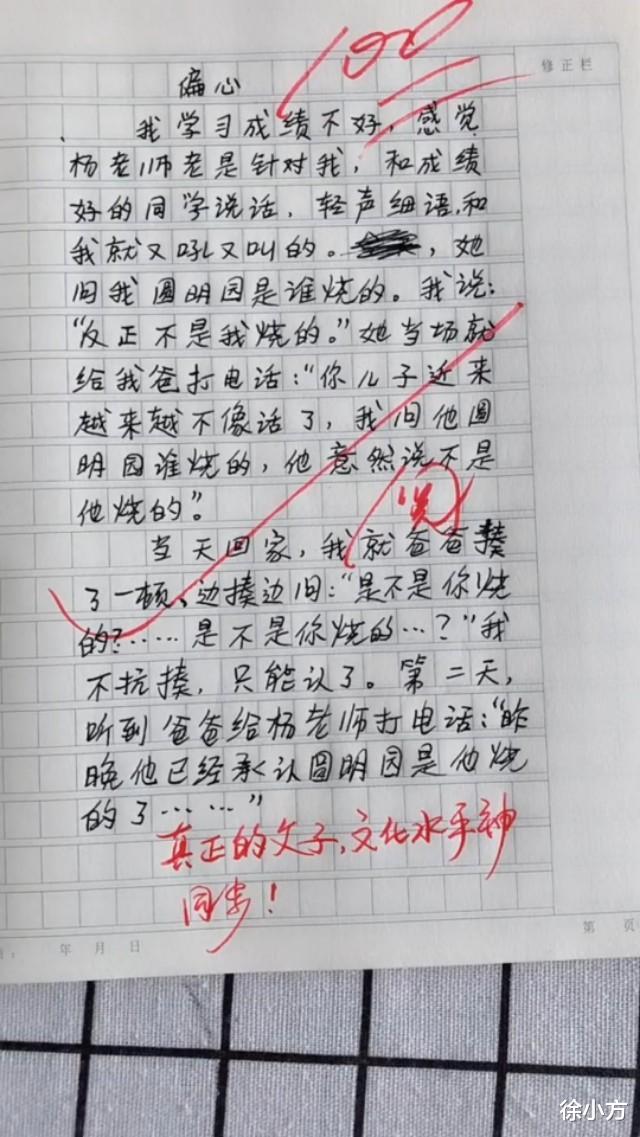 100
修正栏
偏心
、我学习成绩不好，感觉
杨老师老是针对我，和成绩
好的同学说话，轻声细语，和
我就又吼又叫的。，她
问我圆明园是谁烧的。我说：
“反正不是我烧的。”她当场就
给我爸打电话：“你儿子近来
越来越不像话了，我问他圆
明园谁烧的，他意然说不是
他烧的”。
竟
当天回家，我就爸爸揍
了一顿、边揍边问：“是不是你烧
的？……是不是你烧的…？”我
不抗揍，只能认了。第二天，
听到爸爸给杨老师打电话：“昨
晚他已经承认圆明园是他烧
的了……”
真正的父子，文化水平神
同步！
年 月 日
第 页
徐小方